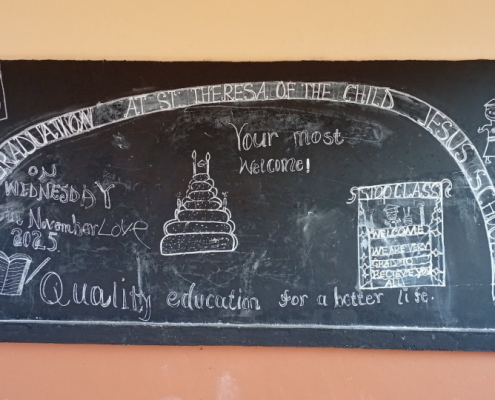 GRADUATION AT ST. THERESA OF THE CHILD JESUS SCHOOL
ON
WEDNESDAY
November Love
2025
Your most
Welcome!
STOP CLASS
WELCOME
WE ARE VERY
GRAD TO
RECIEVE YOU
ALL
Quality education for a better life.